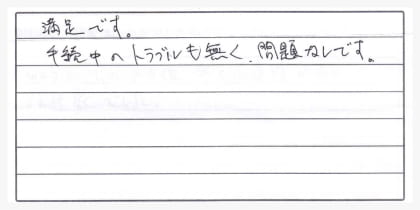 満足です。
手続中のトラブルも無く、問題なしです。